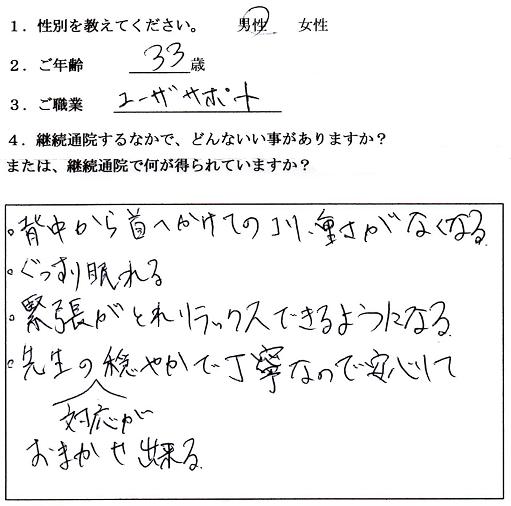 1．性別を教えてください。 男性 女性
2．ご年齢 33歳
3．ご職業 ユーザサポート
4．継続通院するなかで、どんないい事がありますか？
または、継続通院で何が得られていますか？
。背中から首へかけてのコリ、重さがなくなる。
。ぐっすり眠れる
。緊張がとれリラックスできるようになる
。先生の穏やかで丁寧なので安心して
対応が
おまかせ出来る。